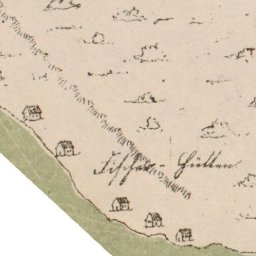 Fischer-Hütten